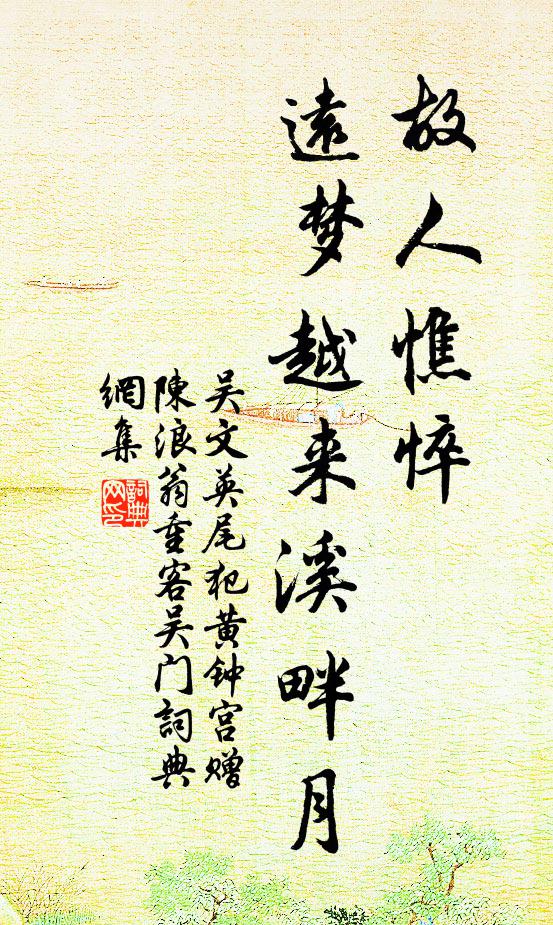 故人憔悴
遠梦越来溪畔月
吴文英尾犯黄钟宫赠
陳浪翁重客吴门詞典
網集
詞典
网印